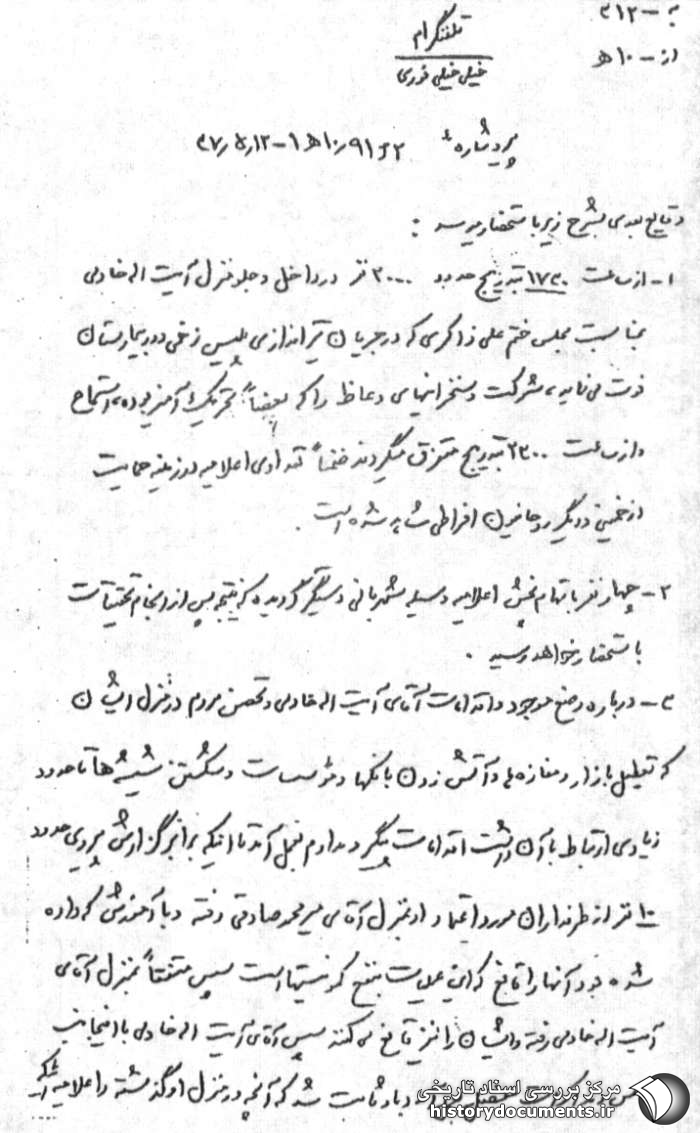 به – ۳۱۲
از – ۱۰ ه‍
تلفنگرام
خیلی خیلی فوری
پیرو شماره ۹۱۶۲ /۱۰ه‍ ۱ – ۱۲ /۵ /۳۷
وقایع بعدی بشرح زیر باستحضار میرسد :
۱- از ساعت ۱۷۳۰ بتدریج حدود ۲۰۰۰ نفر در داخل و جلو منزل آیت اله خادمی
بمناسبت مجلس ختم علی ذاکری که در جریان تیراندازی پلیس زخمی و در بیمارستان
فوت می نماید، شرکت و سخنرانیهای وعاظ را که بعضاً تحریک آمیز بوده، استماع
و از ساعت ۲۲۰۰ بتدریج متفرق میگردند ضمناً تعدادی اعلامیه در زمینه حمایت
از خمینی و دیگر روحانیون افراطی مشاهده شده است.
۲- چهار نفر باتهام پخش اعلامیه وسیله شهربانی دستگیر گردیده که نتیجه پس از انجام تحقیقات
باستحضار خواهد رسید .
۳- درباره وضع موجود و اقدامات آقای آیت اله خادمی و تحصن مردم در منزل ایشان
که تعطیل بازار و مغازه ها و آتش زدن بانکها و مؤسسات و شکستن شیشه ها تا حدود
زیادی ارتباط به آن داشت اقدامات پیگیر و مداوم بعمل آمد تا اینکه برابر گزارش پیروی حدود
۱۰ نفر از طرفداران مورد اعتماد او بمنزل آقای میرمحمد صادقی رفته و با آموزشی که داده
شده بود آنها را قانع که این عملیات بنفع کمونیستها است سپس متفقاً بمنزل آقای
آیت اله خادمی رفته و ایشان را نیز قانع می کنند سپس آقای آیت اله خادمی با اینجانب
و باو ثابت شد که آنچه در منزل او گذشته و اعلامیه
مرکز بررسی اسناد تاریخی
historydocuments.ir